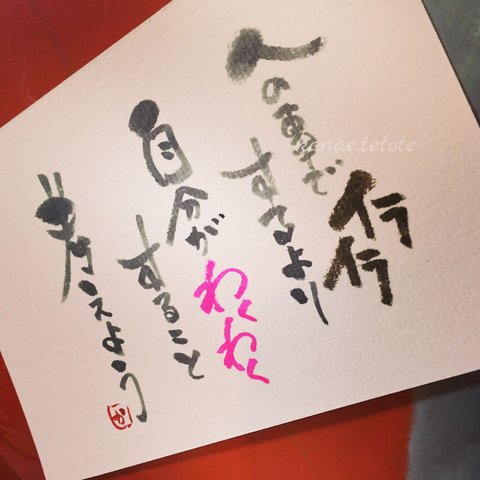 人の で
イライラ
するより
自分が
わくわく
すること
考えよう
kanae.tetote